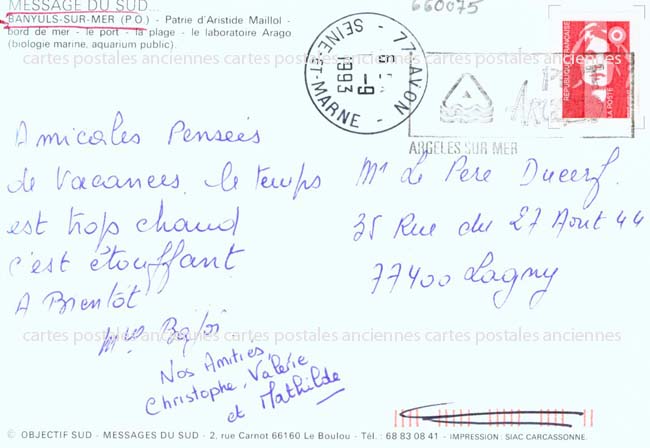 MESSAGE DU SUD...
BANYULS-SUR-MER (P.O.) - Patrie d'Aristide Maillol -
bord de mer - le port - la plage - le laboratoire Arago
(biologie marine, aquarium public).
660075
77-AVON
-9
1993
SEINE-ET-MARNE
ARGELES SUR MER
REPUBLIQUE FRANÇAISE
LA POSTE
cartes postales anciennes cartes postales anciennes cartes postales anciennes
Amicales Pensées
de Vacances, le temps
est trop chaud
c'est étouffant
A Bientôt
Nos Amitiés
Christophe, Valérie
et Mathilde
Mr Le Pere
35 Rue du 27 Aout 44
77400 Lagny
cartes postales anciennes cartes postales anciennes cartes postales anciennes
© OBJECTIF SUD - MESSAGES DU SUD - 2, rue Carnot 66160 Le Boulou - Tél. : 68 83 08 41 - IMPRESSION : SIAC CARCASSONNE.